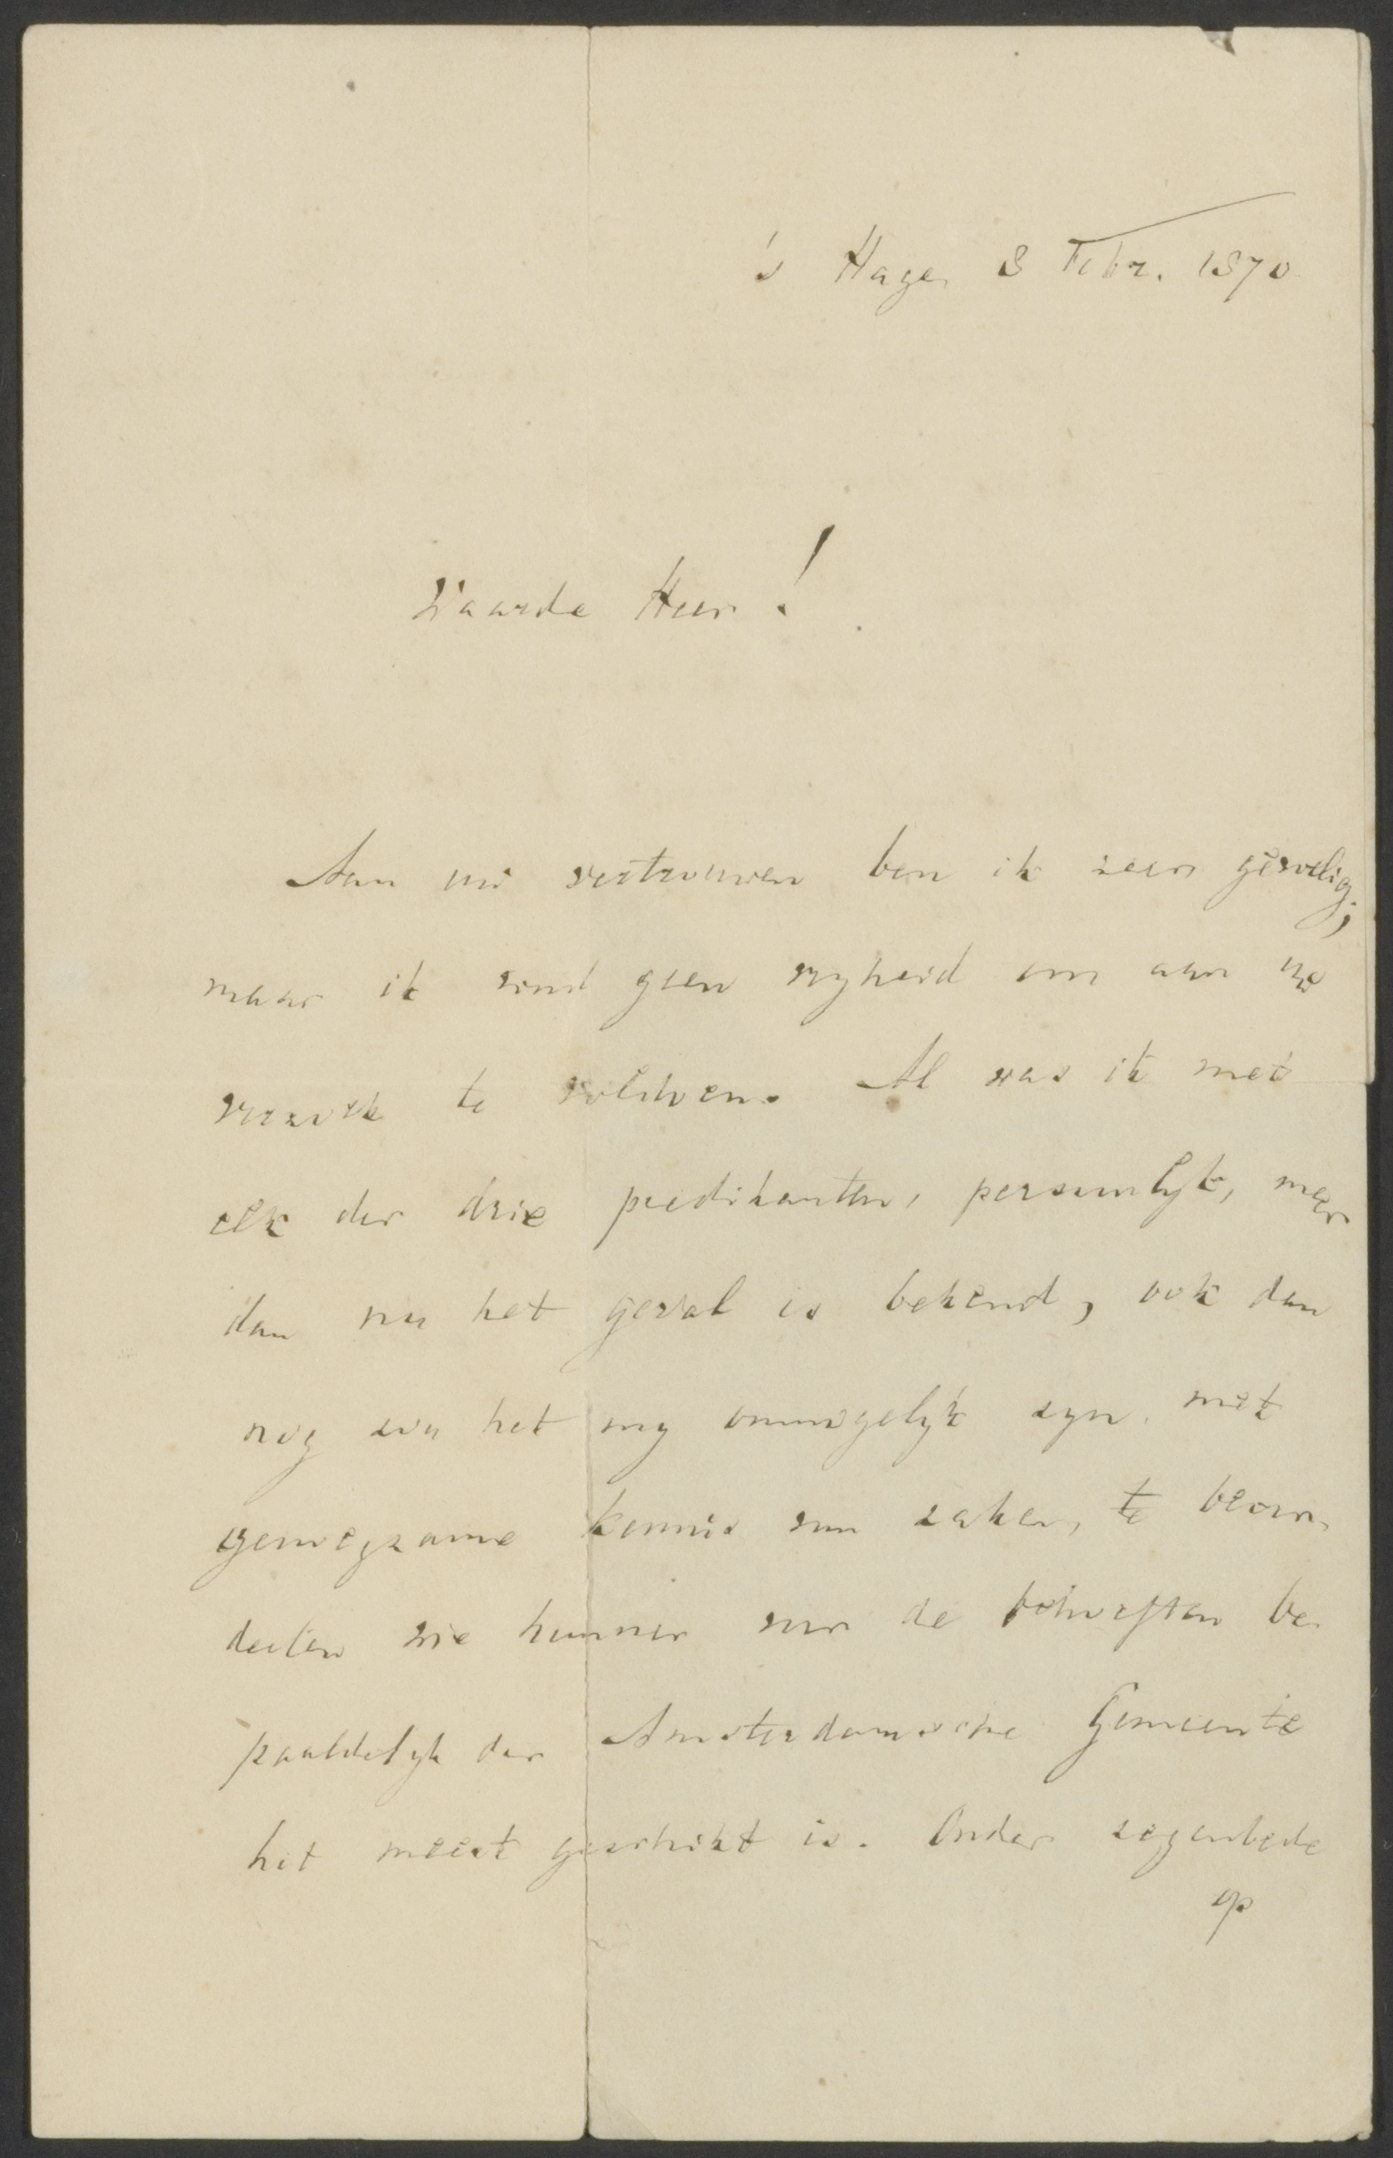 's Hage 8 Febr. 1870
Waarde Heer!
Aan uw vertrouwen ben ik zeer gevoelig;
maar ik vind geen vryheid om aan uw
verzoek te voldoen. Al was ik met
elk der drie predikanten, persoonlyk, meer
dan nu het geval is bekend, ook dan
nog zou het my onmogelyk zyn met
genoegzame kennis van zaken, te beoor,
deelen wie hunner voor de behoeften be,
paaldelyk der Amsterdamsche Gemeente
het meest geschikt is. Onder zegenbede
op